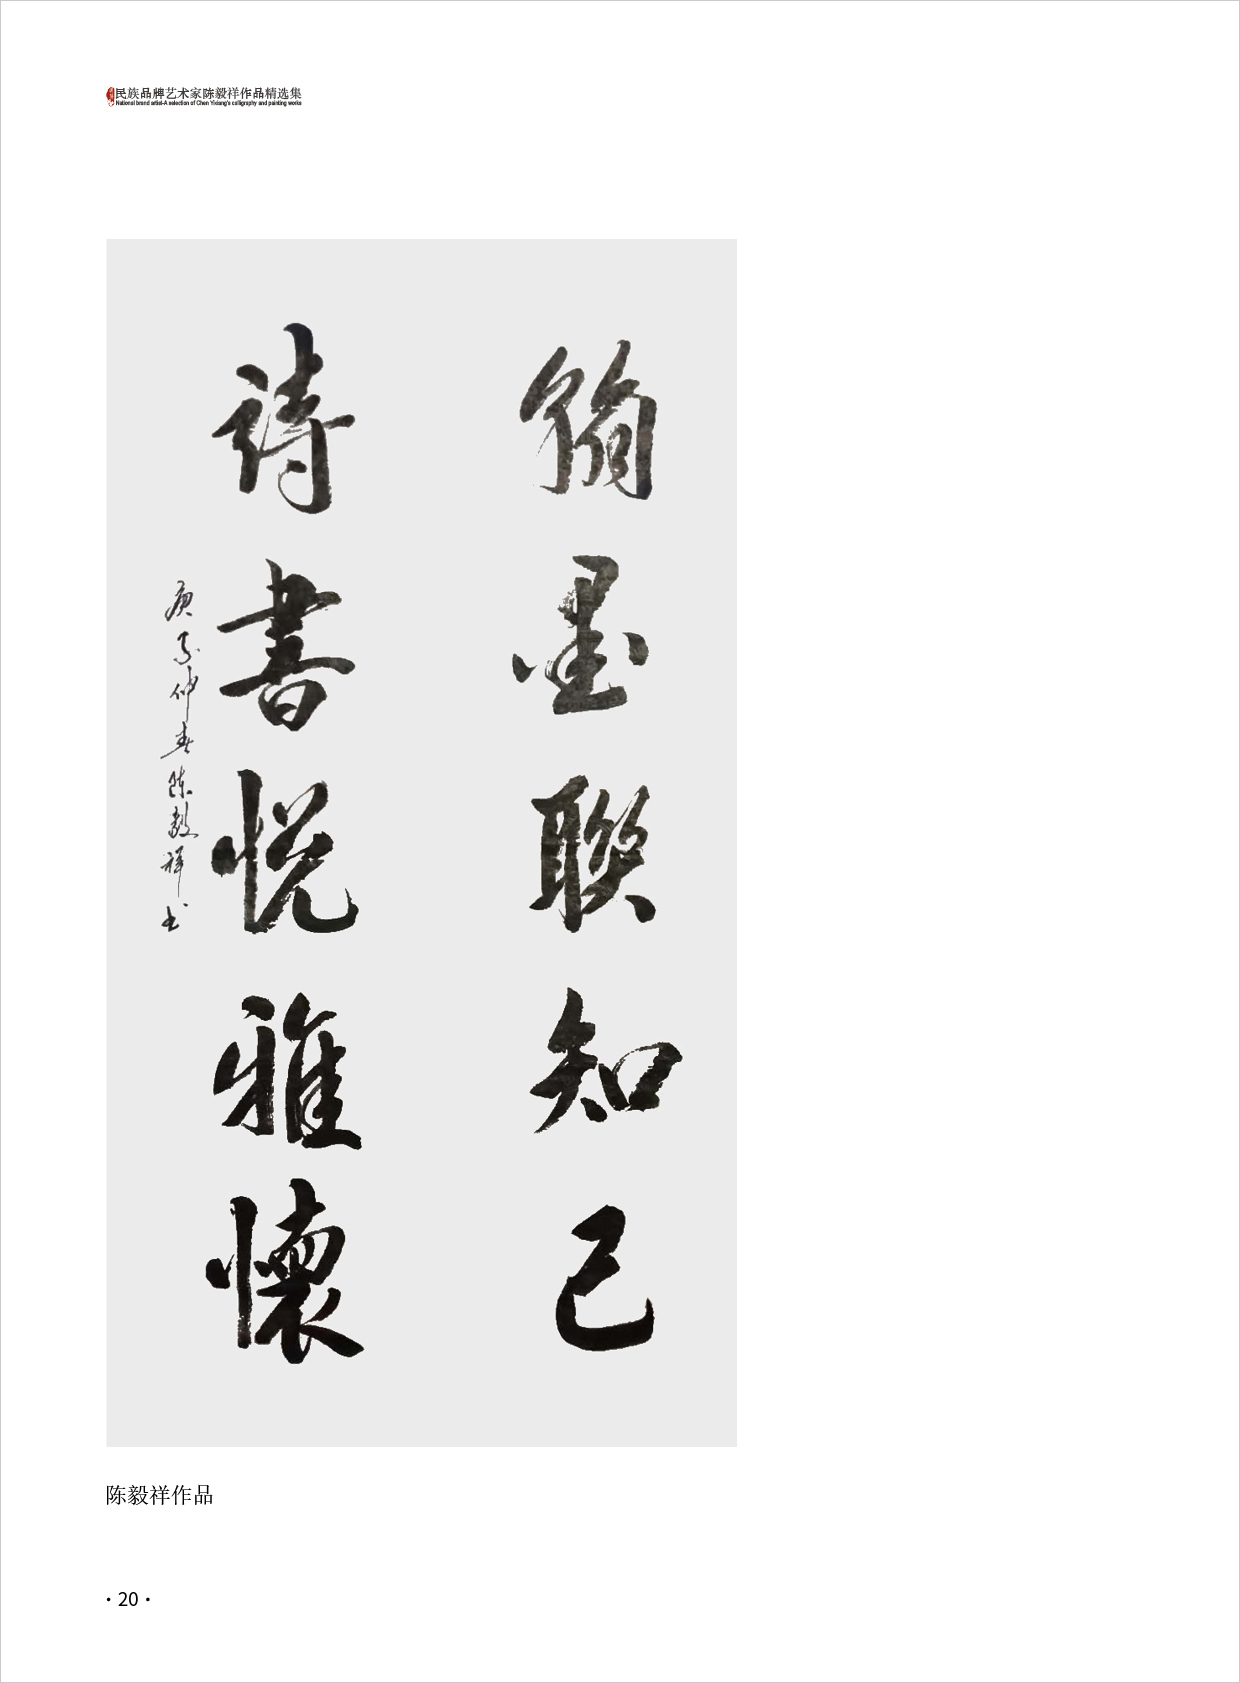 民族品牌艺术家陈毅祥作品精选集
National brand artist-A selection of Chen Yixiang's calligraphy and painting works
翰墨聯知己
詩書悦雅懷
庚子仲春陈毅祥书
陈毅祥作品
·20·